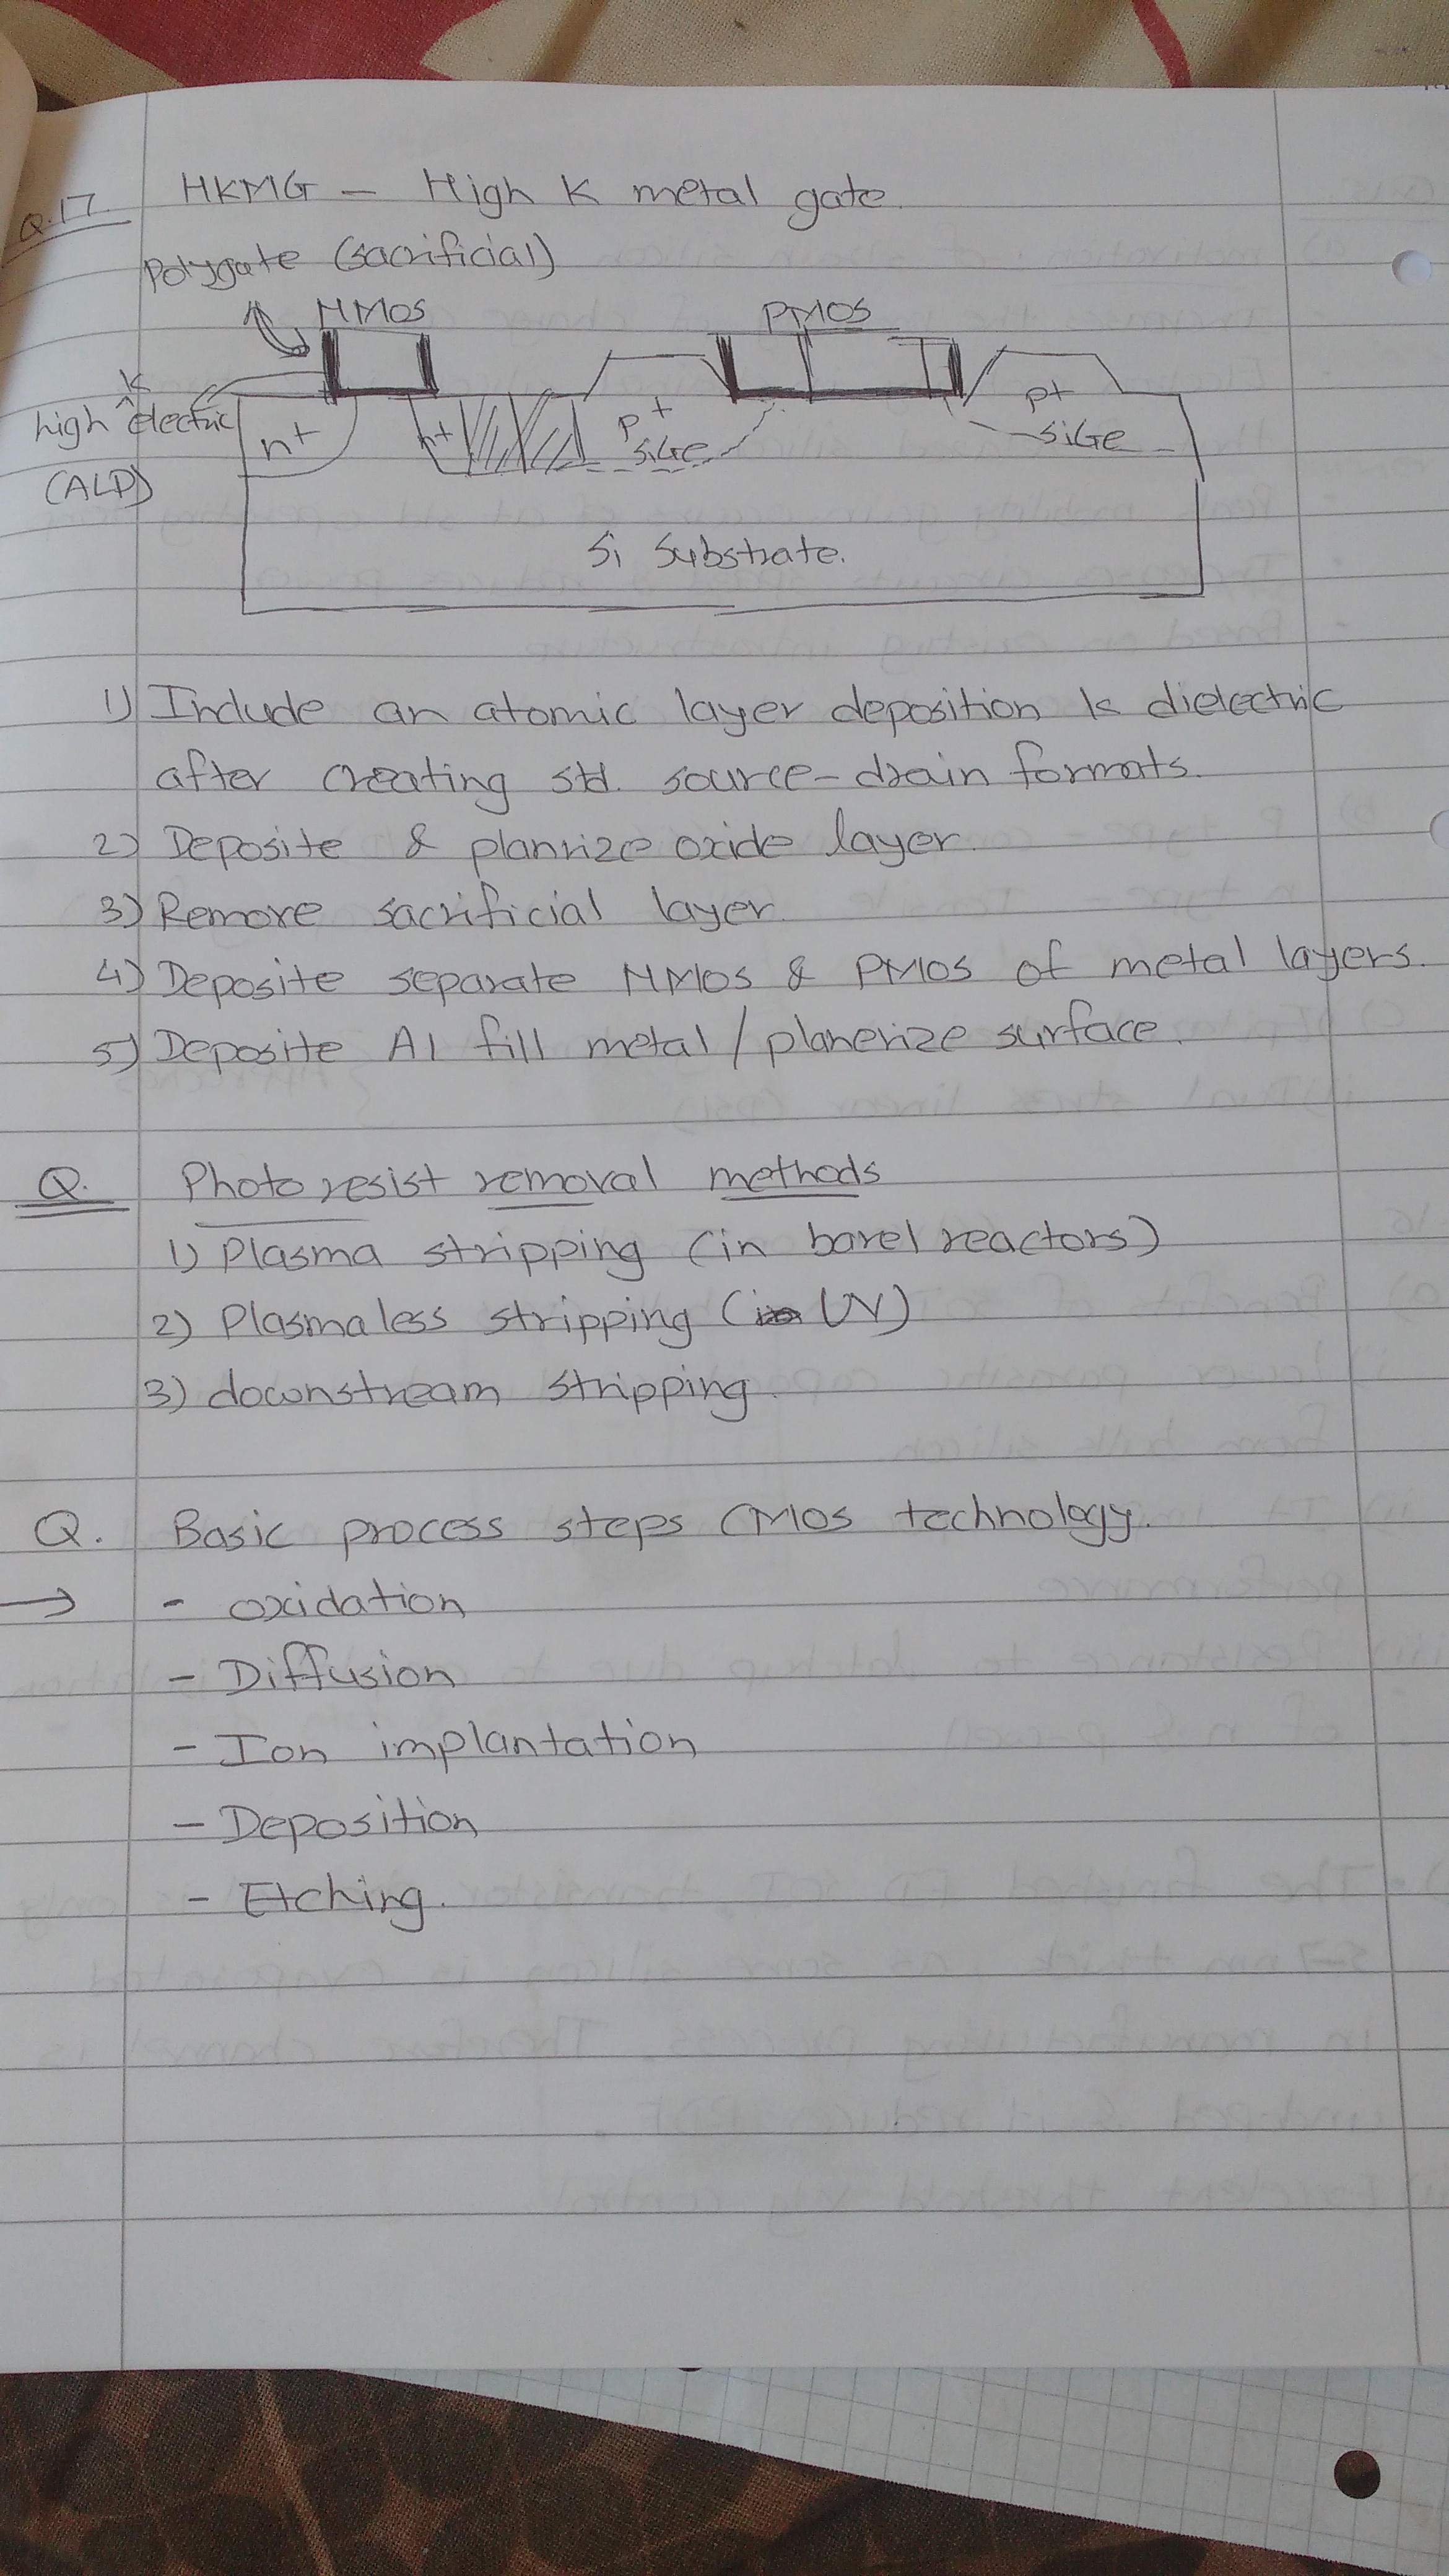 Q.17. HKMG - High K metal gate.
Polygate (sacrificial)
NMOS PMOS
high k electric
(ALD)
n+ n+ p+ SiGe p+ SiGe
Si Substrate.
1) Include an atomic layer deposition k dielectric
after creating std. source-drain formats.
2) Deposite & planrize oxide layer.
3) Remove sacrificial layer.
4) Deposite separate NMOS & PMOS of metal layers.
5) Deposite Al fill metal / planerize surface.
Q. Photo resist removal methods
1) Plasma stripping (in barel reactors)
2) Plasmaless stripping (UV)
3) downstream stripping.
Q. Basic process steps CMOS technology.
→ - oxidation
- Diffusion
- Ion implantation
- Deposition
- Etching.